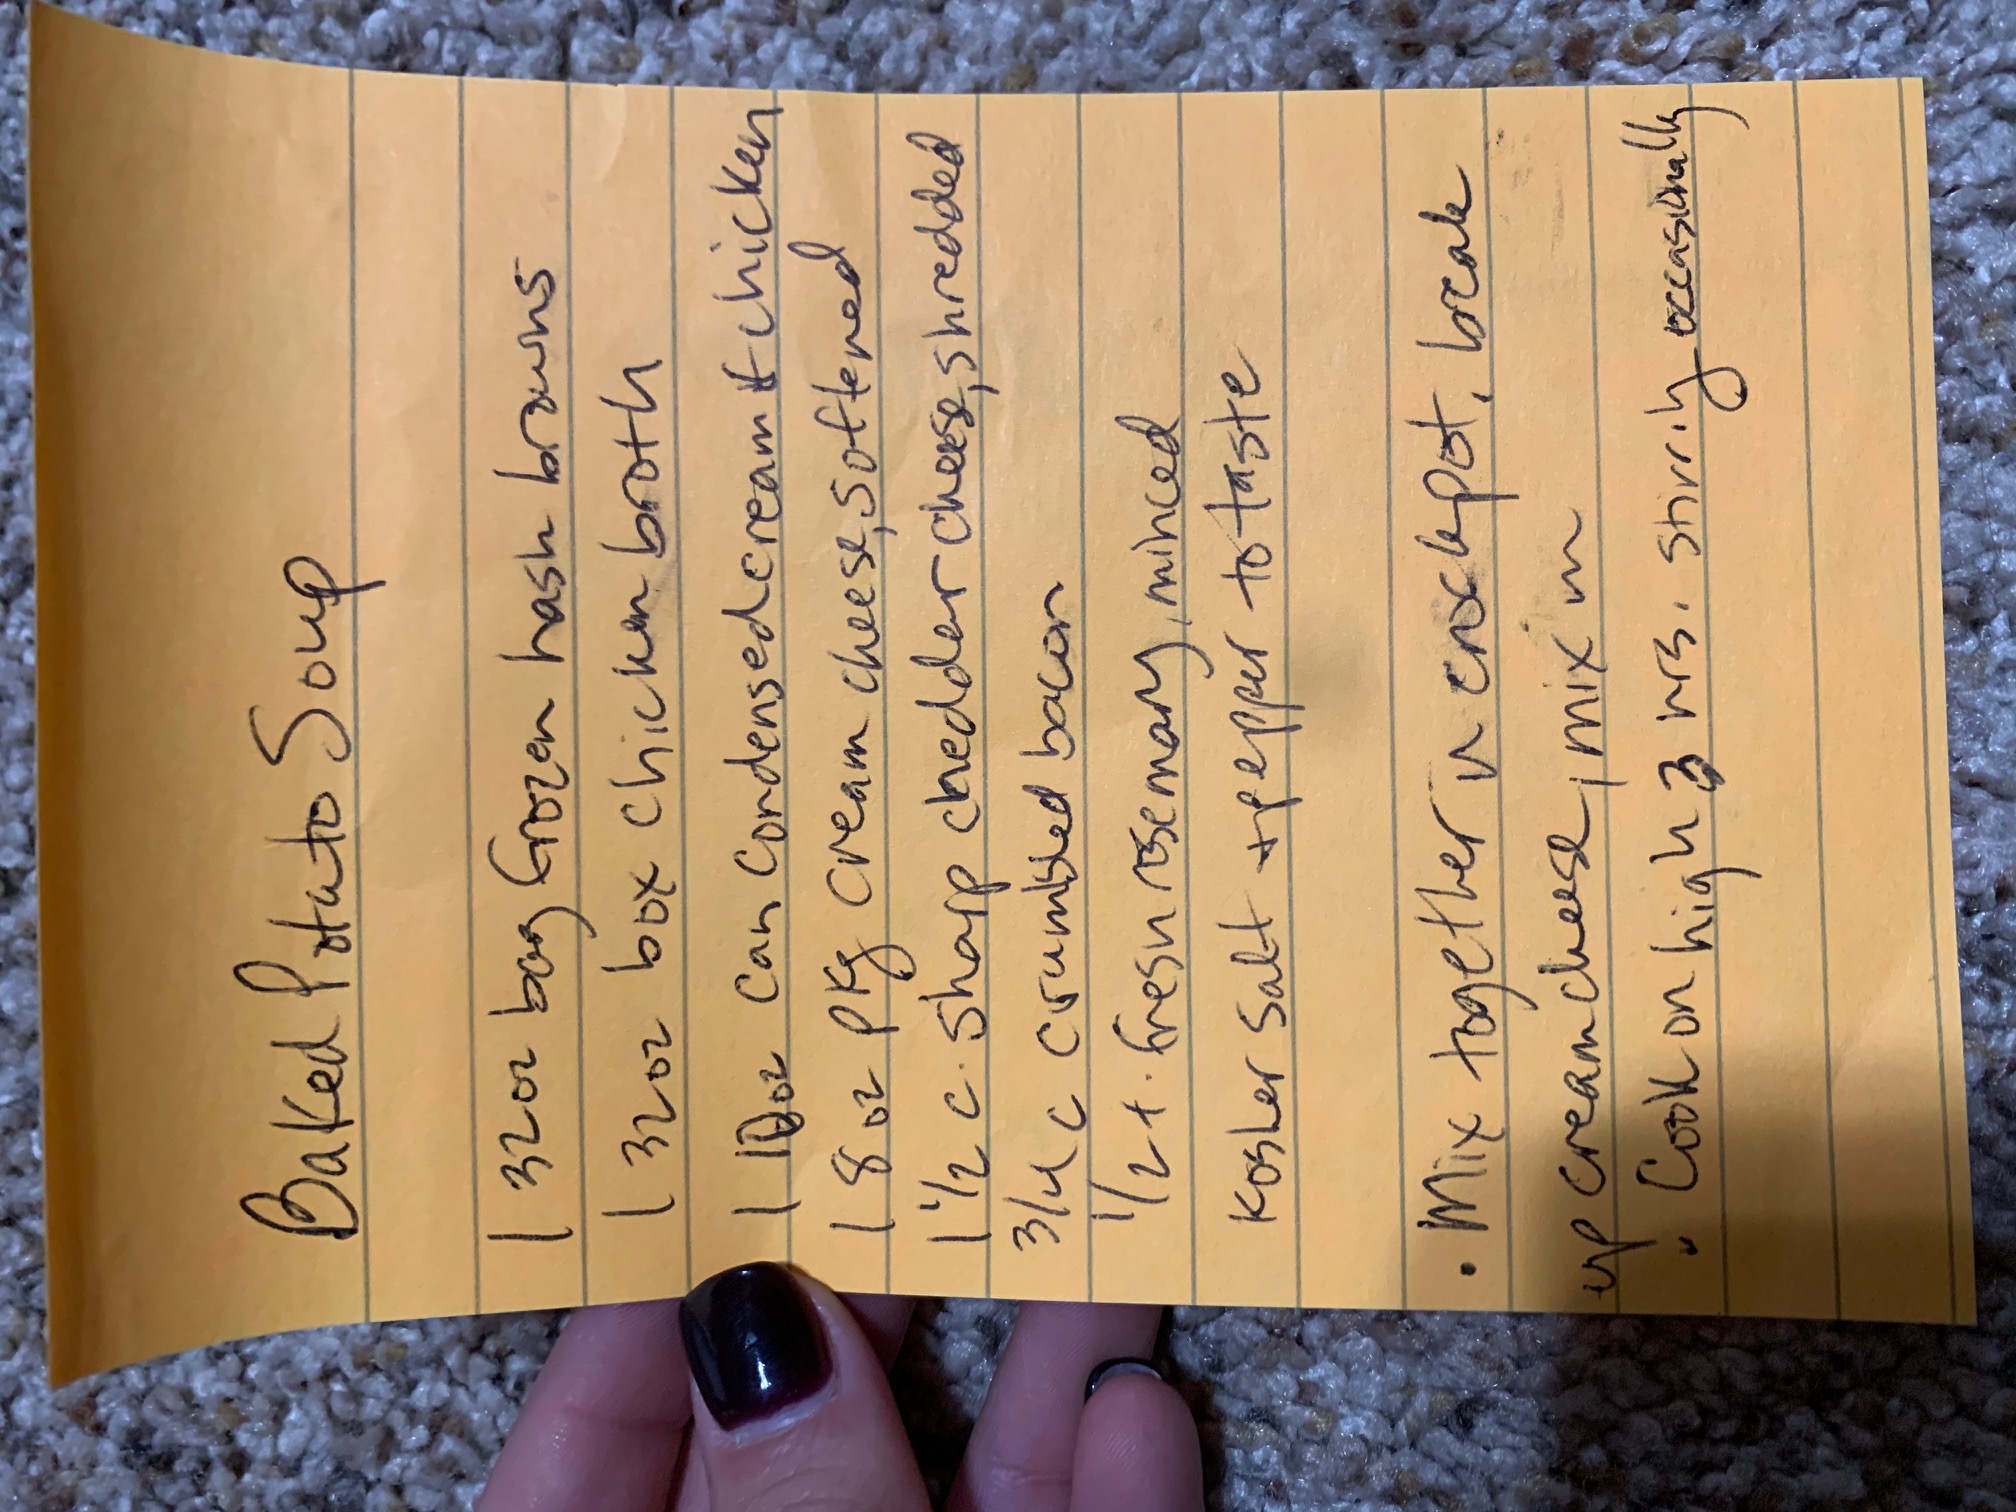 Baked Potato Soup
1 32oz bag frozen hash browns
1 32oz box chicken broth
1 10oz can condensed cream of chicken
1 8oz pkg cream cheese, softened
1 1/2 c. sharp cheddar cheese, shredded
3/4 c crumbled bacon
1/2 t. fresh rosemary, minced
Kosher salt + pepper to taste
• Mix together in crockpot, break
up cream cheese, mix in
• Cook on high 3 hrs. stirring occasionally